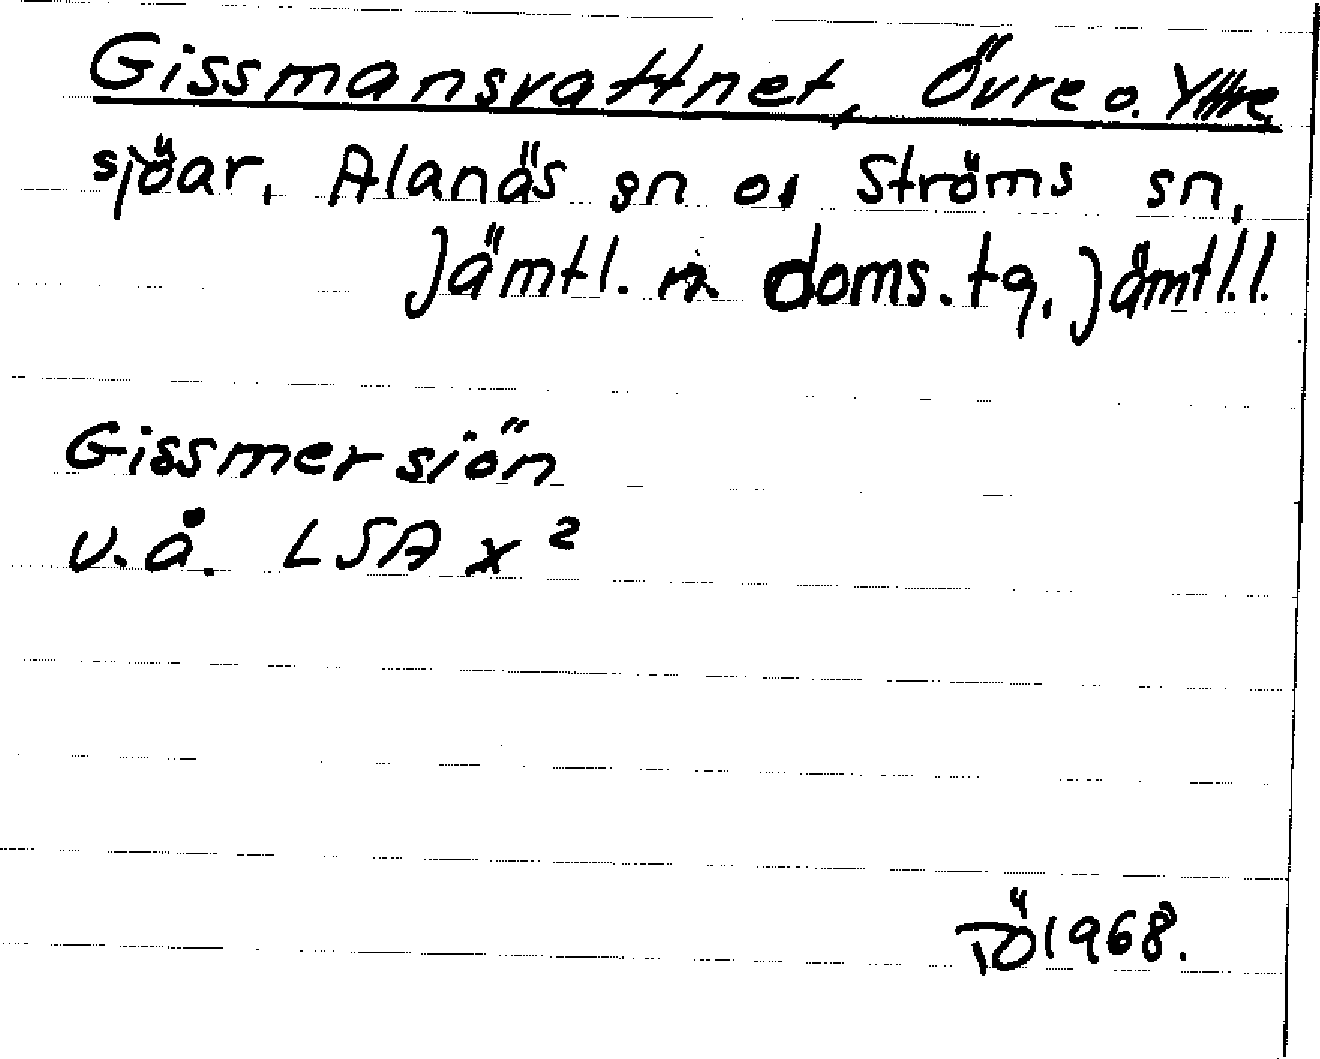 Gissmansvattnet, Övre o. Yttre.
sjöar, Alanäs sn o. Ströms sn,
Jämtl. n. doms. tg, Jämtl. l.
Gissmersjön
u.å. LSA x²
TÖ 1968.